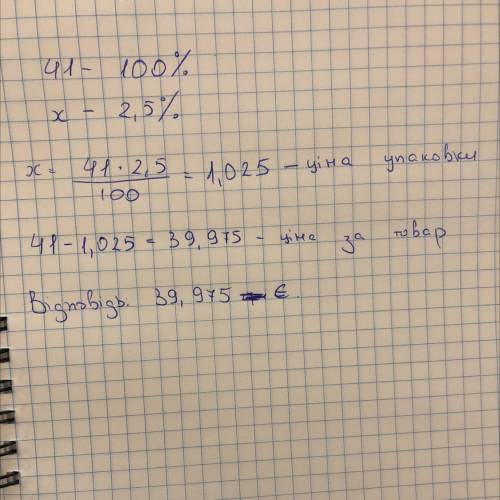 41 - 100%
x - 2,5%
x = 41 · 2,5 / 100 = 1,025 - ціна упаковки
41 - 1,025 = 39,975 - ціна за товар
Відповідь: 39,975 €.